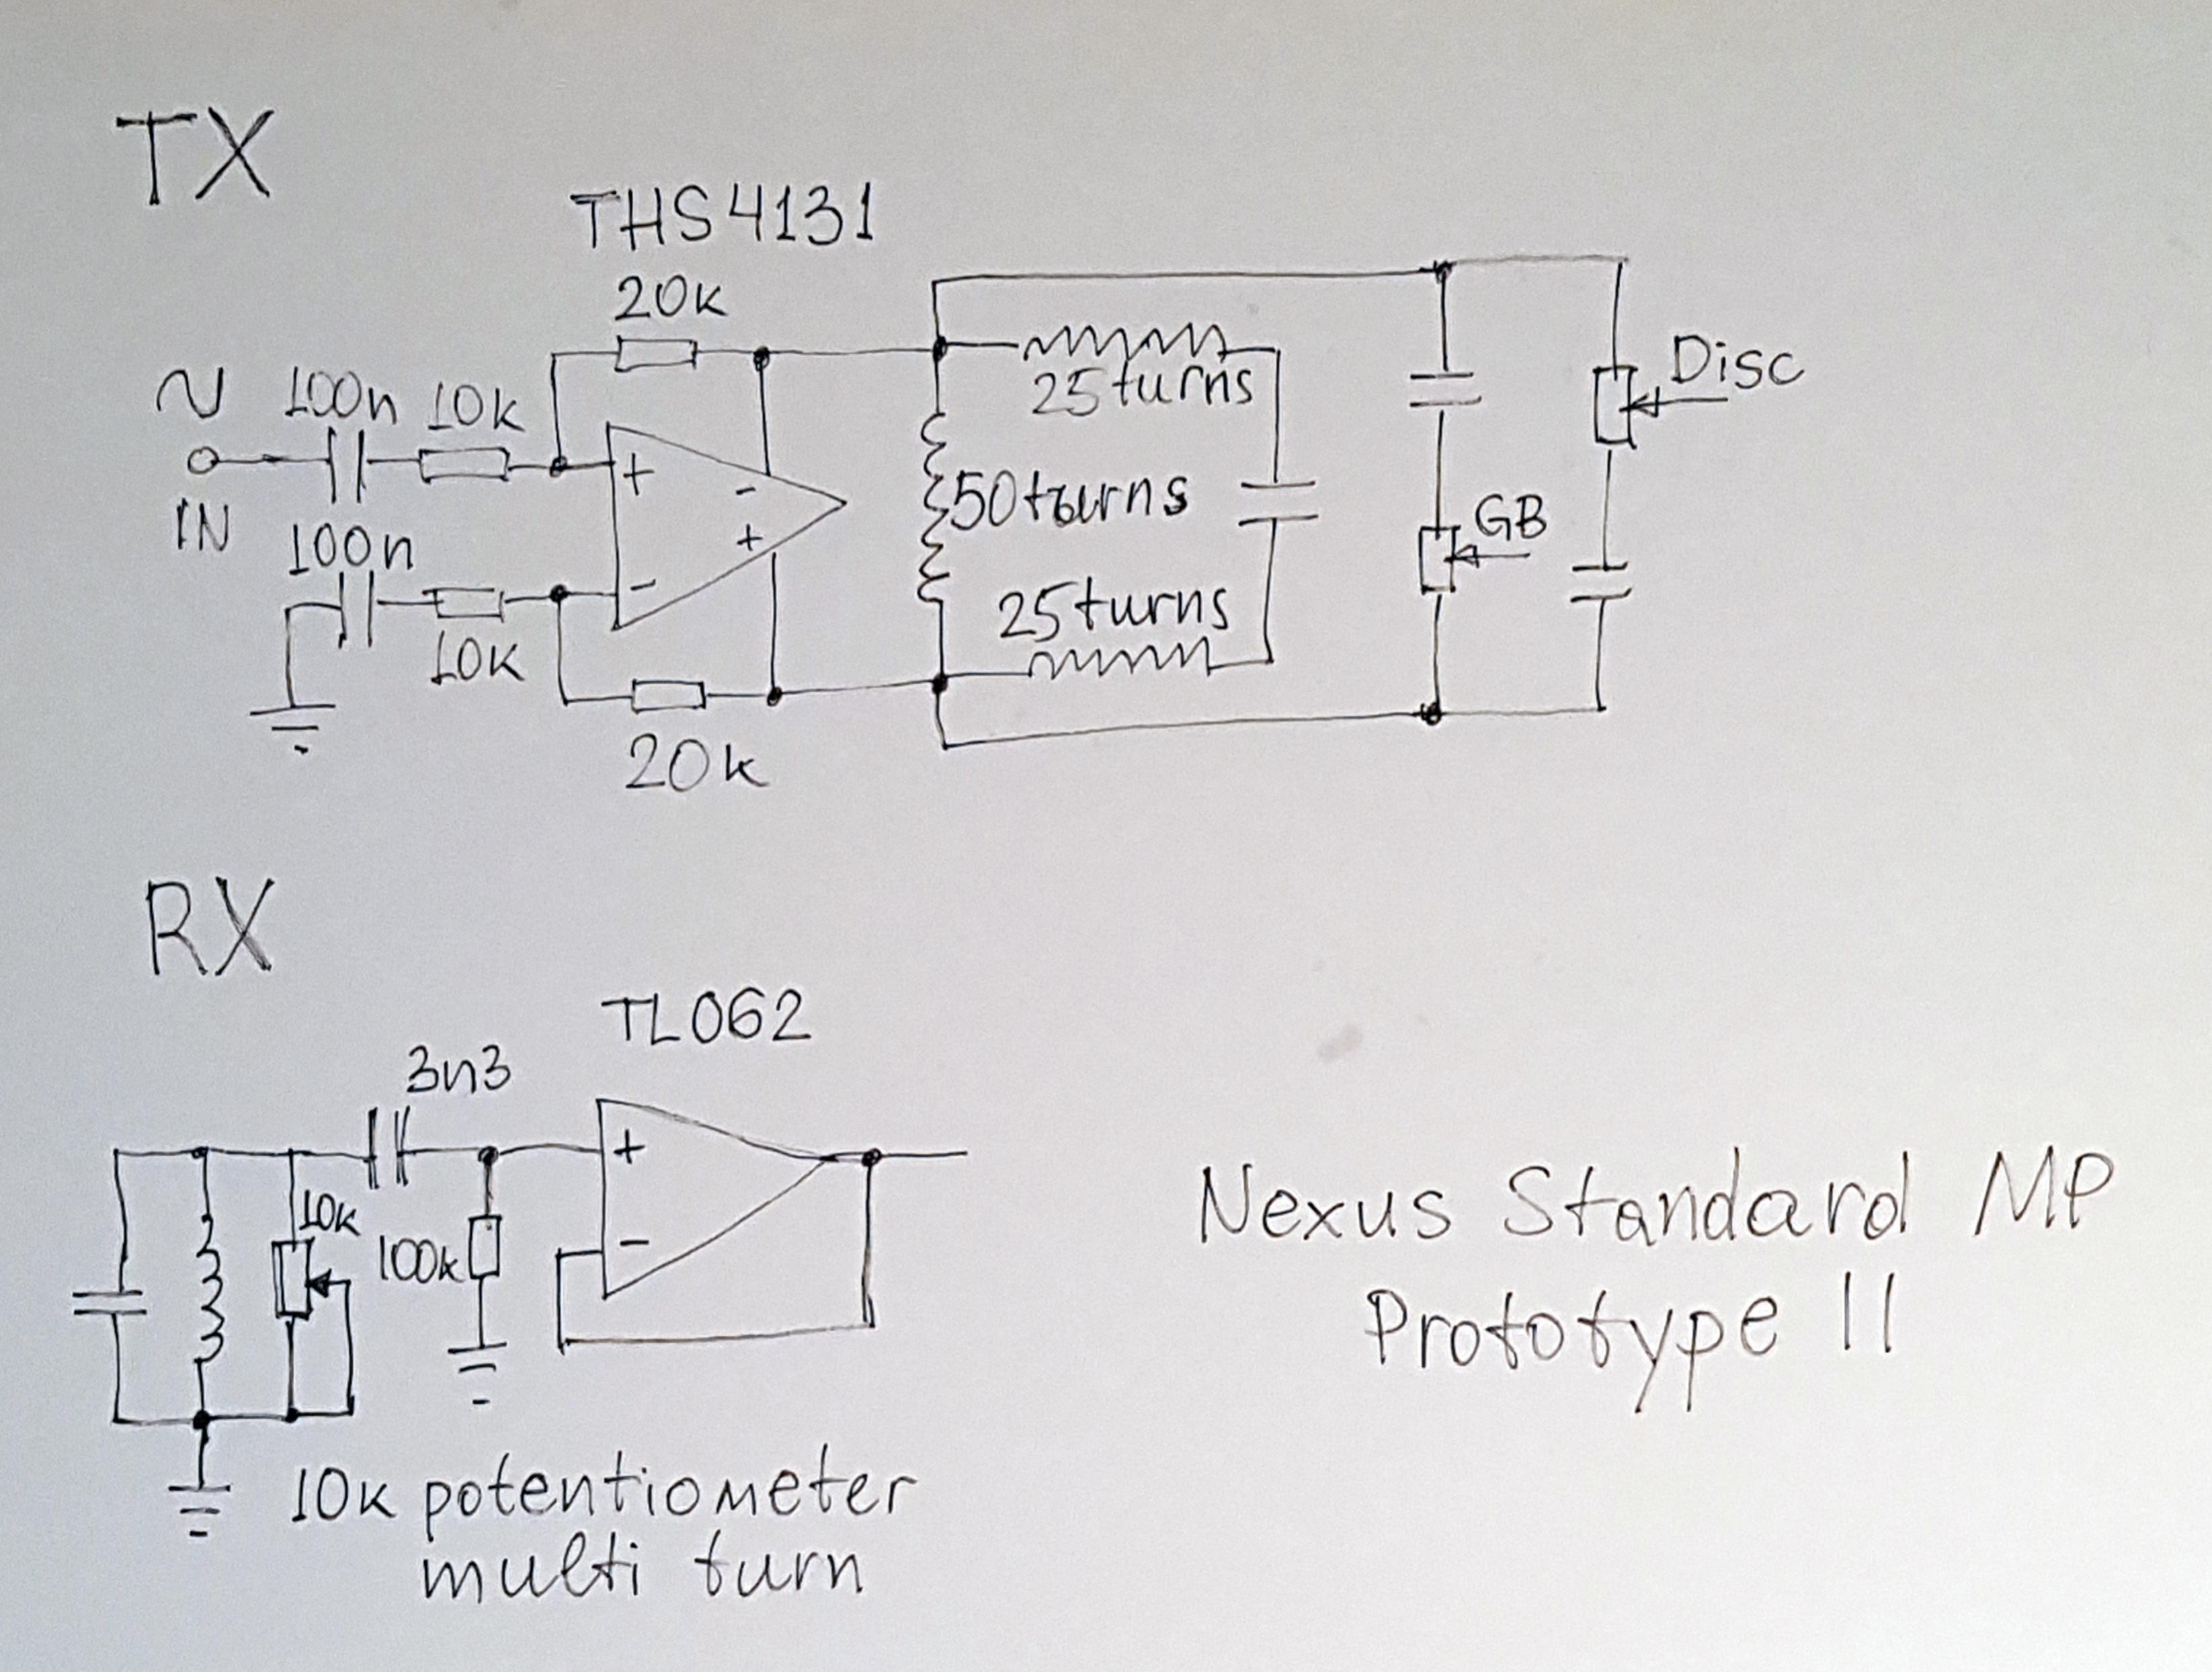 TX
THS4131
20k
∿ 100n 10k
IN
100n
10k
20k
+
-
+
-
25turns
50turns
25turns
Disc
GB
RX
TL062
3n3
10k
100k
+
-
10k potentiometer
multi turn
Nexus Standard MP
Prototype II